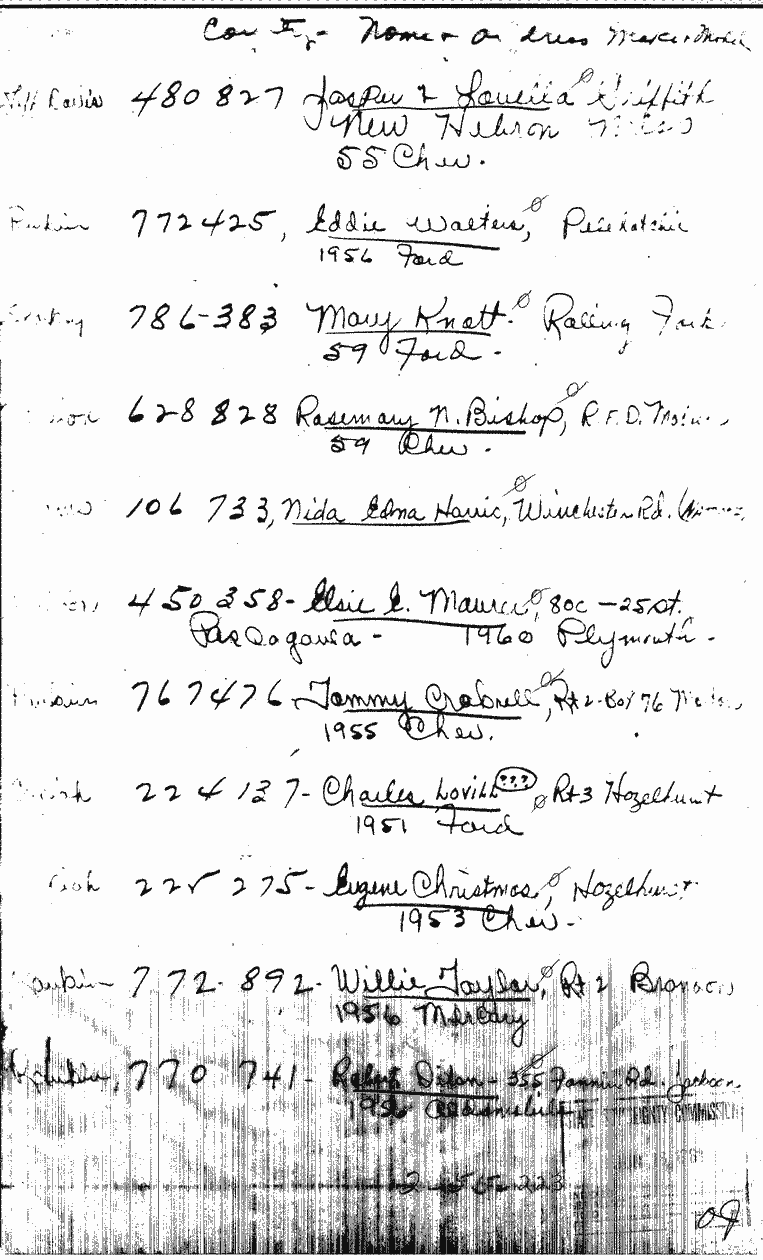 County - Name & address Make & Model
Jeff Davis 480 827 Jasper & Louella Griffith
New Hebron Miss
55 Chev.
Rankin 772425, Eddie Walters, Pelahatchie
1956 Ford
786-383 Mary Knott. Rolling Fork
59 Ford -
628 828 Rosemary N. Bishop, R.F.D.
59 Chev -
106 733, Nida Edna Harris, Winchester Rd.
450 358 - Elsie E. Maurer, 800 - 25 St.
Pascagoula - 1960 Plymouth -
767476 - Tommy Crabrell, Rt 2 - Box 76
1955 Chev.
224 137 - Charles Lovill ??? Rt 3 Hazelhurst
1951 Ford
225 275 - Eugene Christmas, Hazelhurst
1953 Chev -
Rankin 772-892 - Willie Taylor, Rt 2 Brandon
1956 Mercury
770 741 - Robert Dixon - 355 Fannin Rd. Jackson
1956 Oldsmobile